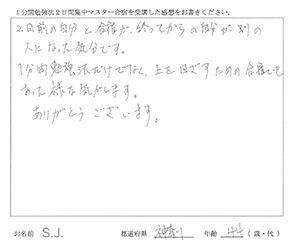 1分間勉強法2日間集中マスター合宿を受講した感想をお書きください。
2日前の自分と合宿が終ってからの自分が別の
人になった気分です。
1分間勉強法だけでなく、上を目ざすための合宿でも
あった様な気がします。
ありがとうございます。
お名前 S.J. 都道府県 神奈川 年齢 44 (歳・代)